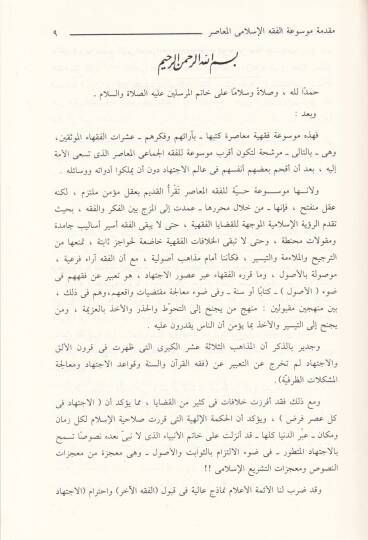 مقدمة موسوعة الفقه الإسلامى المعاصر ٩
بسم الله الرحمن الرحيم
حمدًا لله ، وصلاةً وسلامًا على خاتم المرسلين عليه الصلاة والسلام .
وبعد :
فهذه موسوعة فقهية معاصرة كتبها ـ بآرائهم وفكرهم ـ عشرات الفقهاء الموثقين،
وهى ـ بالتالى ـ مرشحة لتكون أقرب موسوعة للفقه الجماعى المعاصر الذى تسعى الأمة
إليه ، بعد أن أقحم بعضهم أنفسهم فى عالم الاجتهاد دون أن يملكوا أدواته ووسائله .
ولأنها موسوعة حيّة للفقه المعاصر تقرأ القديم بعقل مؤمن ملتزم ، لكنه
عقل منفتح ، فإنها ـ من خلال محررها ـ عمدت إلى المزج بين الفكر والفقه ، بحيث
تقدم الرؤية الإسلامية الموجهة للقضايا الفقهية ، حتى لا يبقى الفقه أسير أساليب جامدة
ومقولات محنطة ، وحتى لا تبقى الخلافات الفقهية خاضعة لحواجز ثابتة ، تمنعها من
الترجيح والملاءمة والتيسير ، فكأننا أمام مذاهب أصولية ، مع أن الفقه آراء فرعية ،
موصولة بالأصول ، وما قرره الفقهاء عبر عصور الاجتهاد ، هو تعبير عن فقههم فى
ضوء ( الأصول ) ـ كتابًا أو سنة ـ وفى ضوء معالجة مقتضيات واقعهم، وهم فى ذلك ،
بين منهجين مقبولين : منهج من يجنح إلى التحوّط والحذر والأخذ بالعزيمة ، ومن
يجنح إلى التيسير والأخذ بما يؤمن أن الناس يقدرون عليه .
وجدير بالذكر أن المذاهب الثلاثة عشر الكبرى التى ظهرت فى قرون الألق
والاجتهاد لم تخرج عن التعبير عن (فقه القرآن والسنة وقواعد الاجتهاد ومعالجة
المشكلات الظرفيّة).
ومع ذلك فقد أفرزت خلافات فى كثير من القضايا ، مما يؤكد أن ( الاجتهاد فى
كل عصر فرض ) ، ويؤكد أن الحكمة الإلهية التى قررت صلاحية الإسلام لكل زمان
ومكان ـ عبْر الدنيا كلها ـ قد أنزلت على خاتم الأنبياء الذى لا نبىّ بعده نصوصًا تسمح
بالاجتهاد المتطور ـ فى ضوء الالتزام بالثوابت والأصول ـ وهى معجزة من معجزات
النصوص ومعجزات التشريع الإسلامى !!
وقد ضرب لنا الأئمة الأعلام نماذج عالية فى قبول (الفقه الآخر) واحترام (الاجتهاد